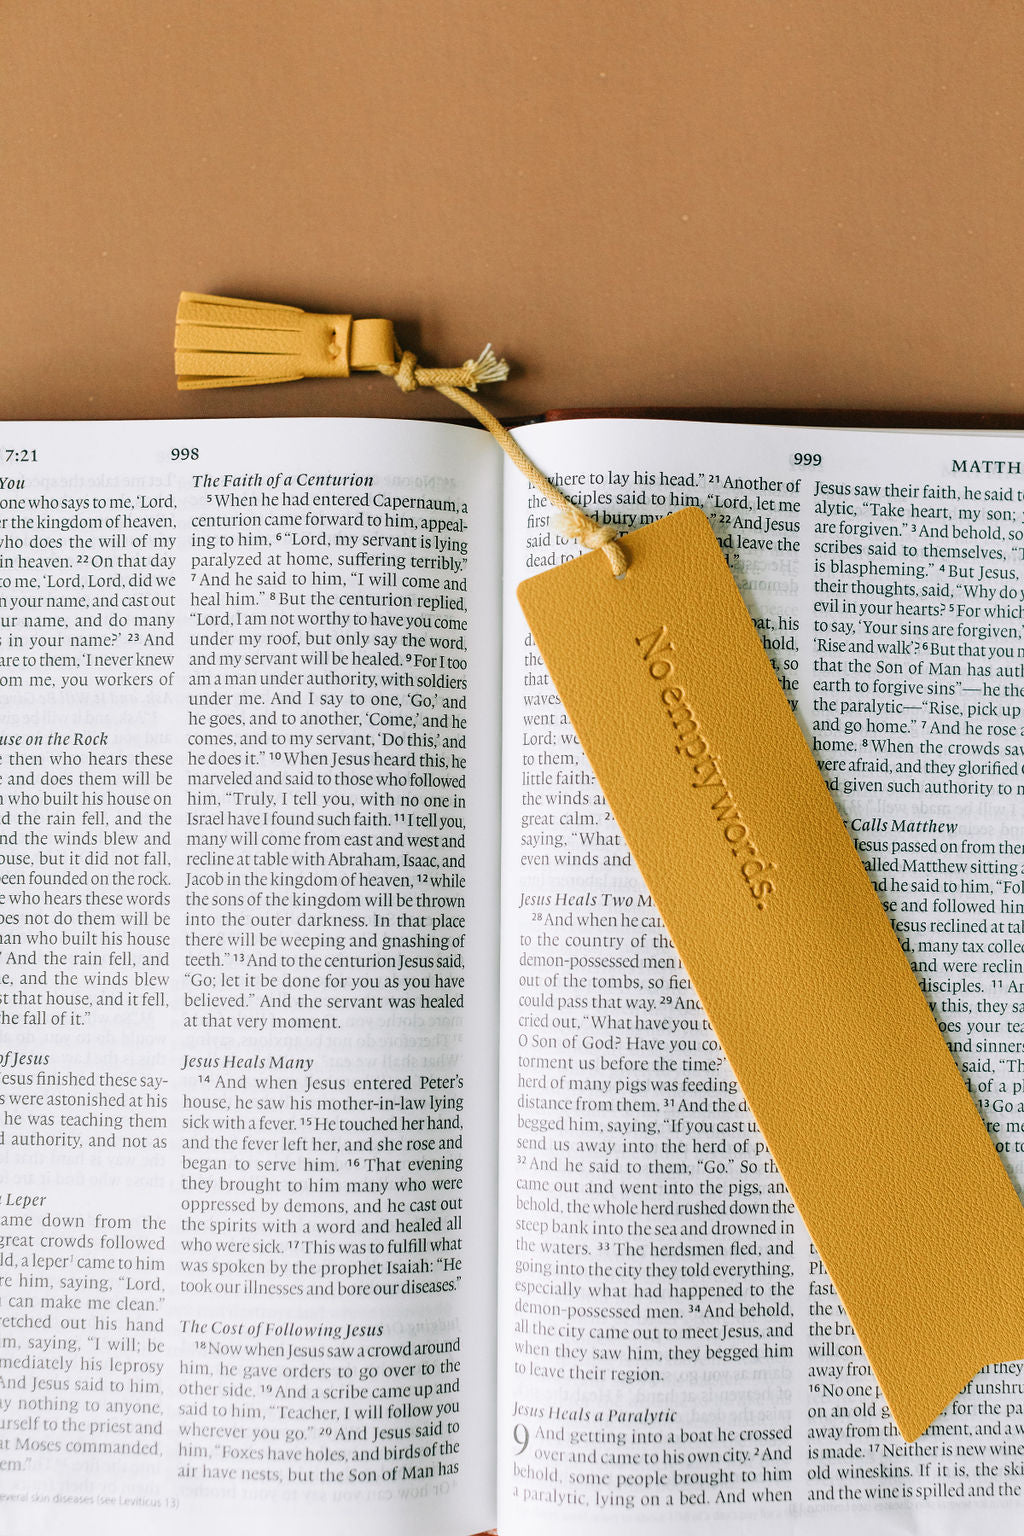 7:21
998
You
one who says to me, ‘Lord,
the kingdom of heaven,
who does the will of my
in heaven. 22 On that day
to me, ‘Lord, Lord, did we
n your name, and cast out
ur name, and do many
in your name?’ 23 And
are to them, ‘I never knew
om me, you workers of
use on the Rock
then who hears these
and does them will be
who built his house on
d the rain fell, and the
nd the winds blew and
ouse, but it did not fall,
been founded on the rock.
who hears these words
oes not do them will be
nan who built his house
And the rain fell, and
e, and the winds blew
st that house, and it fell,
the fall of it.”
of Jesus
esus finished these say-
s were astonished at his
he was teaching them
d authority, and not as
Leper
ame down from the
great crowds followed
ld, a leper¹ came to him
re him, saying, “Lord,
can make me clean.”
retched out his hand
m, saying, “I will; be
mediately his leprosy
And Jesus said to him,
ay nothing to anyone,
urself to the priest and
at Moses commanded,
em.”
everal skin diseases (see Leviticus 13)
The Faith of a Centurion
5 When he had entered Capernaum, a
centurion came forward to him, appeal-
ing to him, 6 “Lord, my servant is lying
paralyzed at home, suffering terribly.”
7 And he said to him, “I will come and
heal him.” 8 But the centurion replied,
“Lord, I am not worthy to have you come
under my roof, but only say the word,
and my servant will be healed. 9 For I too
am a man under authority, with soldiers
under me. And I say to one, ‘Go,’ and
he goes, and to another, ‘Come,’ and he
comes, and to my servant, ‘Do this,’ and
he does it.” 10 When Jesus heard this, he
marveled and said to those who followed
him, “Truly, I tell you, with no one in
Israel have I found such faith. 11 I tell you,
many will come from east and west and
recline at table with Abraham, Isaac, and
Jacob in the kingdom of heaven, 12 while
the sons of the kingdom will be thrown
into the outer darkness. In that place
there will be weeping and gnashing of
teeth.” 13 And to the centurion Jesus said,
“Go; let it be done for you as you have
believed.” And the servant was healed
at that very moment.
Jesus Heals Many
14 And when Jesus entered Peter’s
house, he saw his mother-in-law lying
sick with a fever. 15 He touched her hand,
and the fever left her, and she rose and
began to serve him. 16 That evening
they brought to him many who were
oppressed by demons, and he cast out
the spirits with a word and healed all
who were sick. 17 This was to fulfill what
was spoken by the prophet Isaiah: “He
took our illnesses and bore our diseases.”
The Cost of Following Jesus
18 Now when Jesus saw a crowd around
him, he gave orders to go over to the
other side. 19 And a scribe came up and
said to him, “Teacher, I will follow you
wherever you go.” 20 And Jesus said to
him, “Foxes have holes, and birds of the
air have nests, but the Son of Man has
999
MATTH
nowhere to lay his head.” 21 Another of
the disciples said to him, “Lord, let me
first and bury my 22 And Jesus
said to nd leave the
dead to
oat, his
hold,
the , so
that he
waves
went a
Lord; we
to them,
little faith
the winds a
great calm.
saying, “What
even winds and
Jesus Heals Two M
28 And when he ca
to the country of the
demon-possessed men
out of the tombs, so fie
could pass that way. 29 And
cried out, “What have you t
O Son of God? Have you co
torment us before the time?”
herd of many pigs was feeding
distance from them. 31 And the d
begged him, saying, “If you cast u
send us away into the herd of p
32 And he said to them, “Go.” So th
came out and went into the pigs, and
behold, the whole herd rushed down the
steep bank into the sea and drowned in
the waters. 33 The herdsmen fled, and
going into the city they told everything,
especially what had happened to the
demon-possessed men. 34 And behold,
all the city came out to meet Jesus, and
when they saw him, they begged him
to leave their region.
Jesus Heals a Paralytic
9 And getting into a boat he crossed
over and came to his own city. 2 And
behold, some people brought to him
a paralytic, lying on a bed. And when
No empty words.
Jesus saw their faith, he said to
alytic, “Take heart, my son;
are forgiven.” 3 And behold, so
scribes said to themselves, “T
is blaspheming.” 4 But Jesus,
their thoughts, said, “Why do y
evil in your hearts? 5 For which
to say, ‘Your sins are forgiven,’
‘Rise and walk’? 6 But that you n
that the Son of Man has auth
earth to forgive sins”—he the
the paralytic—“Rise, pick up
and go home.” 7 And he rose a
home. 8 When the crowds saw
were afraid, and they glorified
nd given such authority to m
s Calls Matthew
Jesus passed on from ther
alled Matthew sitting a
nd he said to him, “Fol
se and followed him
Jesus reclined at tab
d, many tax collec
and were reclin
disciples. 11 An
w this, they sa
oes your tea
nd sinners
said, “Th
d of a p
13 Go a
re me
ot to
fast
the w
the br
will con
away fro they
16 No one p of unshru
on an old g , for the pa
away from the arment, and a w
is made. 17 Neither is new wine
old wineskins. If it is, the ski
and the wine is spilled and the